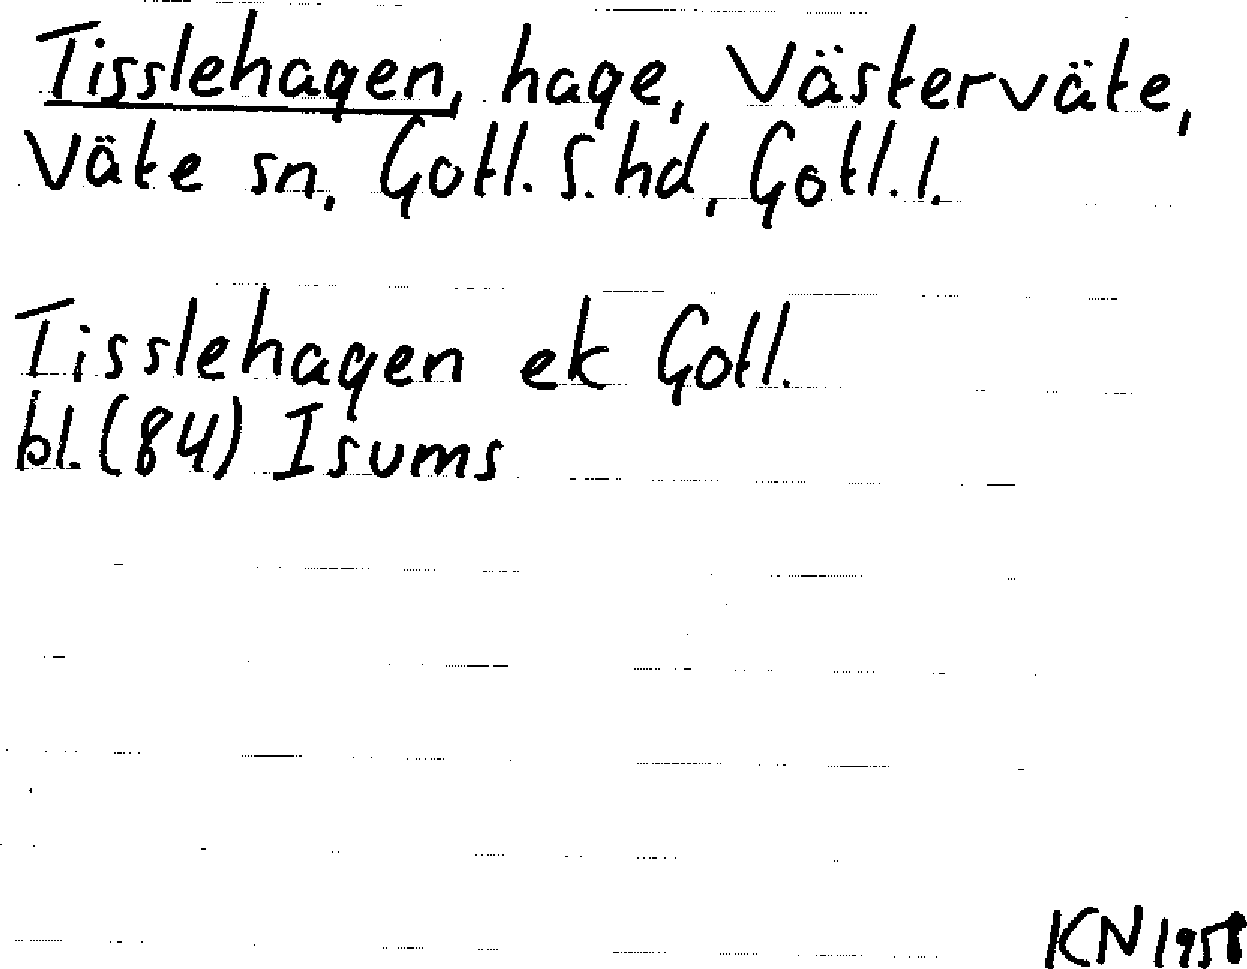 Tisslehagen, hage, Västerväte,
Väte sn, Gotl. S. hd, Gotl. l.
Tisslehagen ek Gotl.
bl. (84) Isums
KN 1958